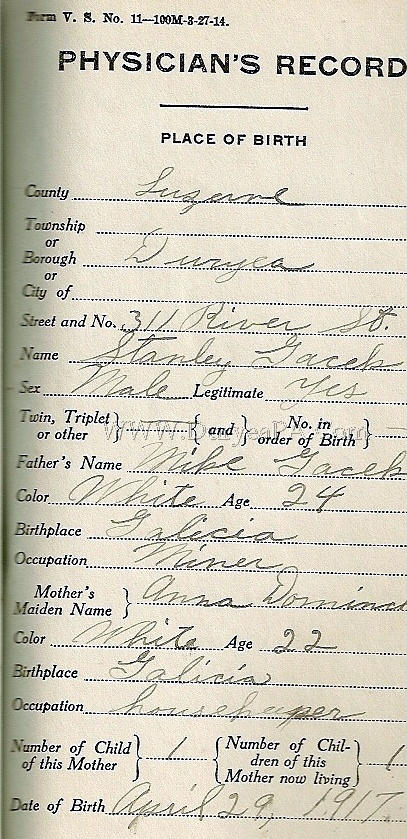 Form V. S. No. 11—100M-3-27-14.
PHYSICIAN'S RECORD
PLACE OF BIRTH
County Luzerne
Township
or
Borough Duryea
or
City of
Street and No. 311 River St.
Name Stanley Gacek
Sex Male Legitimate Yes
Twin, Triplet or other } { and } No. in order of Birth }
Father's Name Mike Gacek
Color White Age 24
Birthplace Galicia
Occupation Miner
Mother's Maiden Name } Anna
Color White Age 22
Birthplace Galicia
Occupation housekeeper
Number of Child of this Mother } 1 { Number of Children of this Mother now living } 1
Date of Birth April 29, 1917